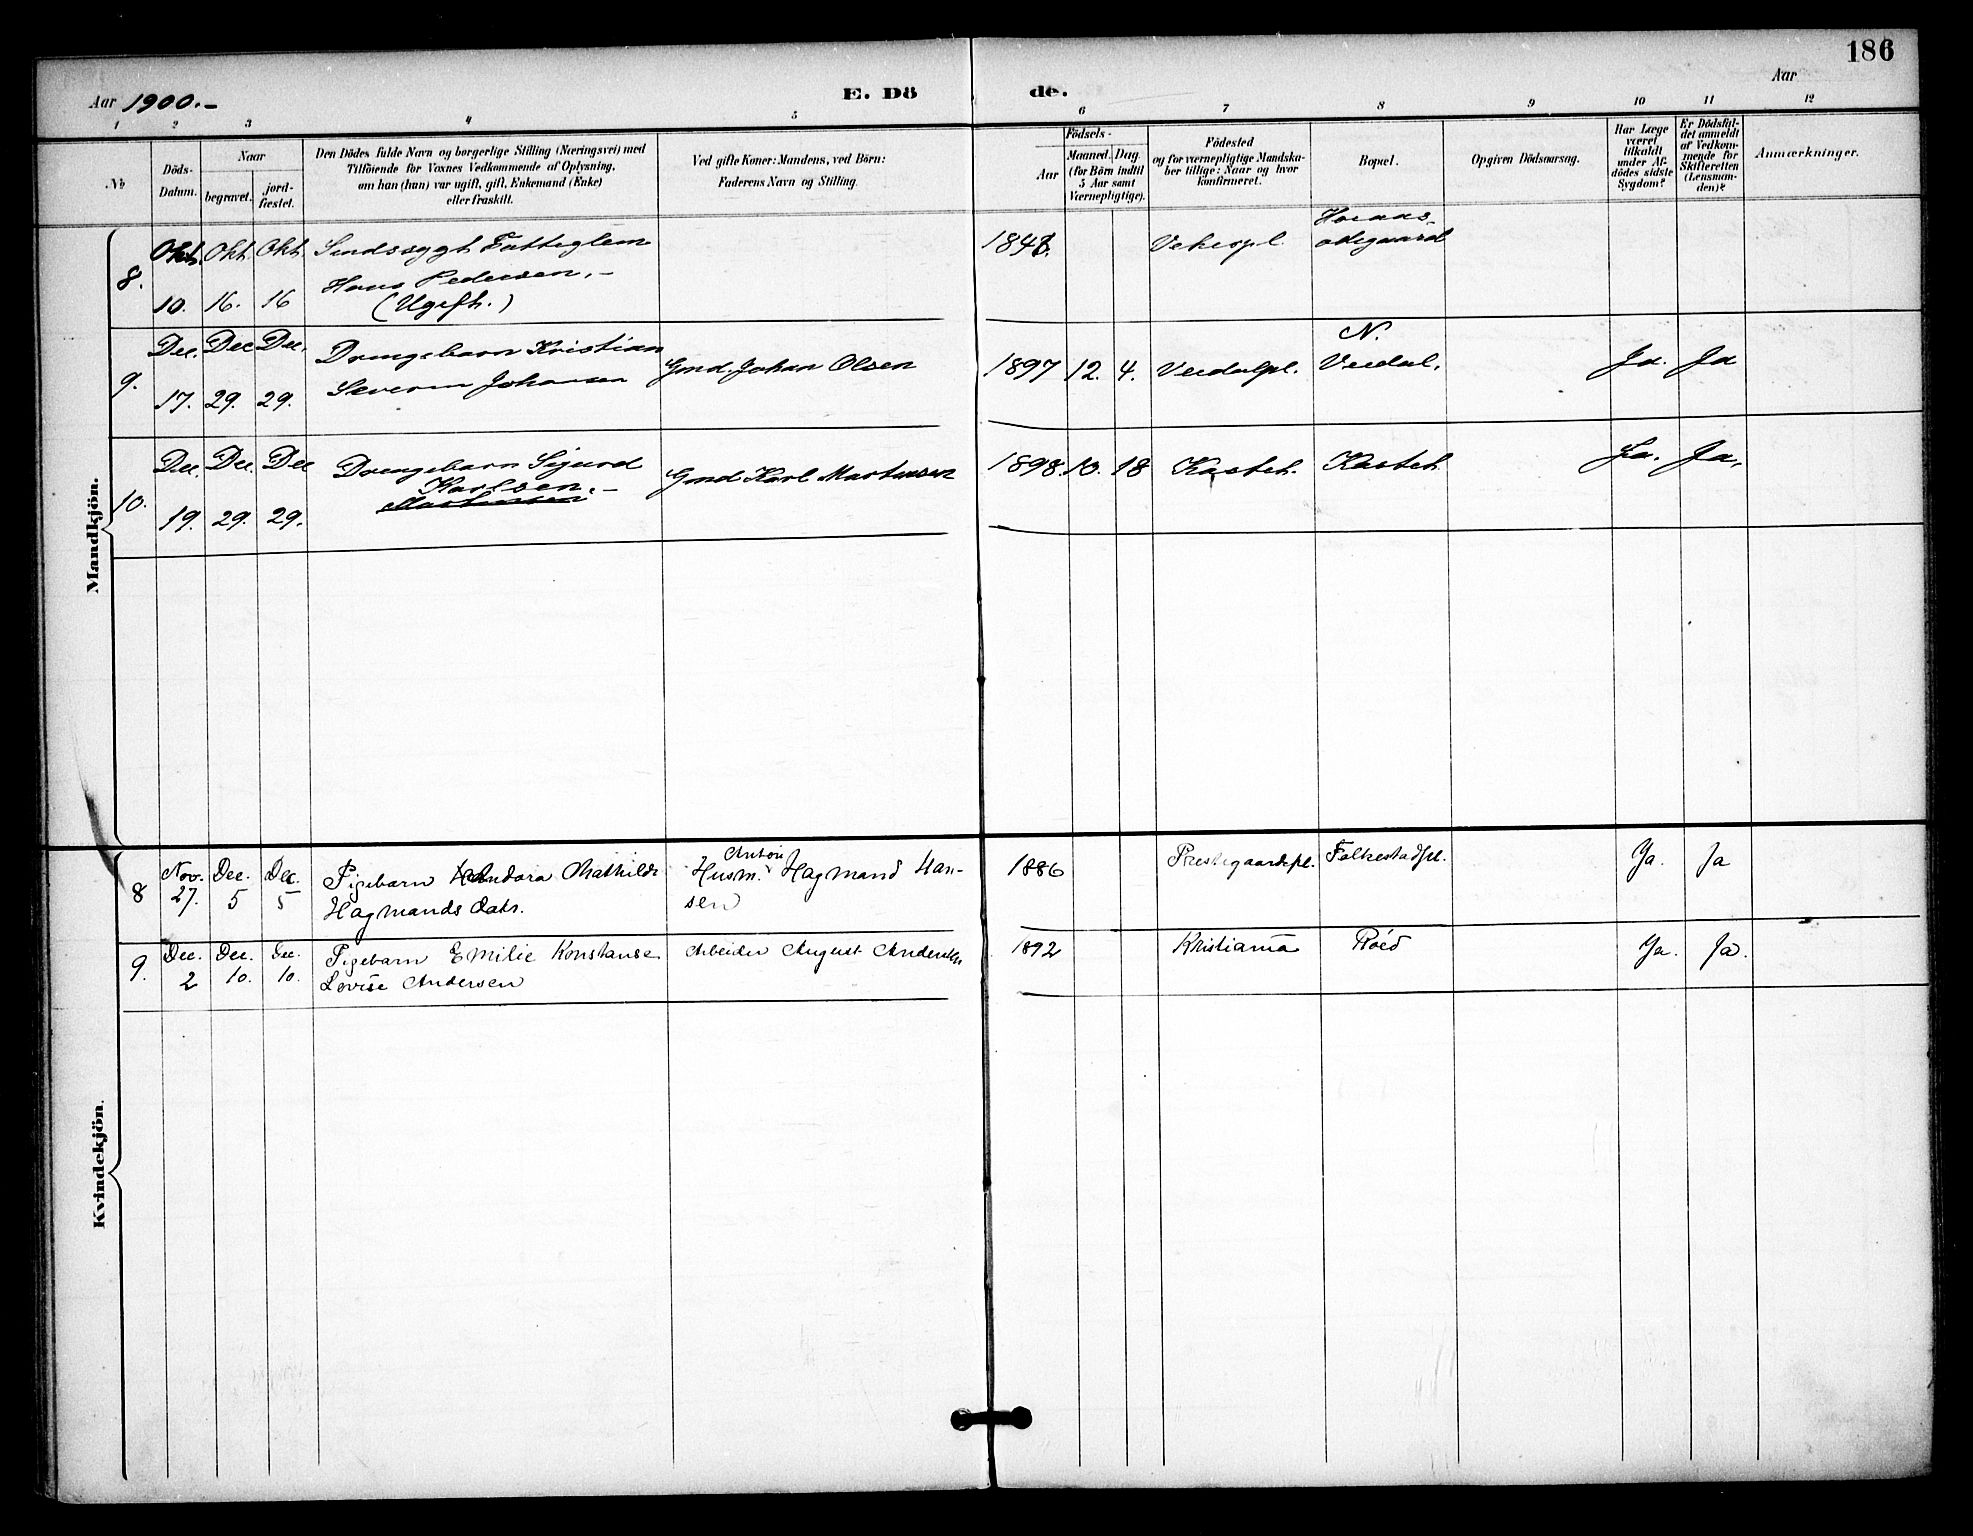 186
Aar 1900.-
E. Dö de.
Aar
1 2 3 4 5 6 7 8 9 10 11 12
No
Döds-Datum.
Naar
begravet.
jord-fæstet.
Den Dödes fulde Navn og borgerlige Stilling (Næringsvei) med
Tilföiende for Voxnes Vedkommende af Oplysning,
om han (hun) var ugift, gift, Enkemand (Enke)
eller fraskilt.
Ved gifte Koner: Mandens, ved Börn:
Faderens Navn og Stilling.
Födsels-
Aar
Maaned. Dag
(for Börn indtil
5 Aar samt
Værnepligtige).
Födested
og for værnepligtige Mandska-
ber tillige: Naar og hvor
konfirmeret.
Bopæl.
Opgiven Dödsaarsag.
Har Læge
været
tilkaldt
under Af-
dödes sidste
Sygdom?
Er Dödsfal-
det anmeldt
af Vedkom-
mende for
Skifteretten
(Lensman-
den)?
Anmærkninger.
Mandkjön.
8. Okt. 10. Okt. 16. Okt. 16
Sindssygt Fattiglem
Hans Pedersen.-
(Ugift.)
odegaard
9. Dec. 17. Dec 29. Dec. 29.
Drengebarn Kristian
Severin Johansen
Gmd. Johan Olsen
1897 12. 4. Veidalpl. N. Veidal. Ja. Ja
10. Dec. 19. Dec. 29. Dec 29.
Drengebarn Sigurd
Karlsen.-
Martinsen
Gmd Karl Martinsen
1898. 10. 18 Kasteh. Kasteh Ja. Ja.
Kvindekjön.
8 Nov. 27. Dec. 5 Dec. 5
Pigebarn Andora Mathilde
Hagmands datr.
Anton
Husm. Hagmand Han-
sen
1886 Prestegaardspl. Falkestadpl. Ja. Ja
9. Dec. 2 Dec. 10. Dec. 10.
Pigebarn Emilie Konstanse
Lovise Andersen
Arbeider August Andersen
1892 Kristiania Röed Ja. Ja.